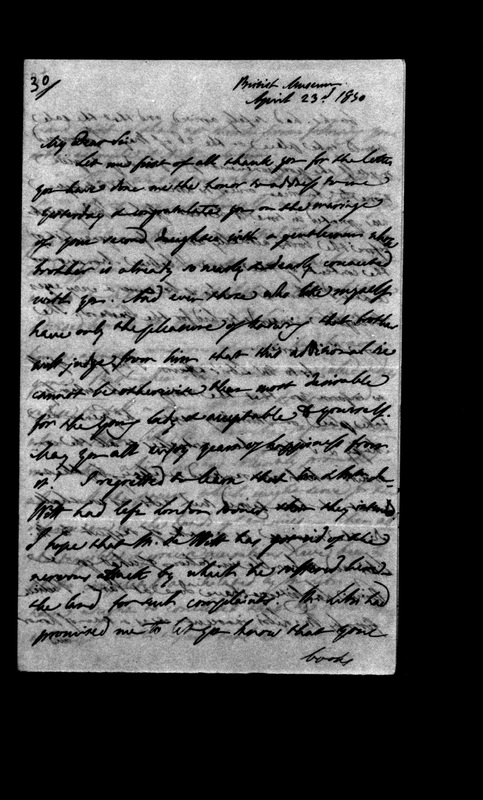 30
British Museum.
April 23d 1850
My Dear Sir
Let me first of all thank you for the letter
you have done me the honor to address to me
yesterday & congratulate you on the marriage
of your second daughter with a gentleman whose
brother is already so nearly & dearly connected
with you. And even those who like myself
have only the pleasure of knowing that brother
will judge from him that this additional tie
cannot be otherwise than most desirable
for the young lady & acceptable to yourself.
May you all enjoy years of happiness from
it! I regretted to learn that de
Witt had left London sooner than they intended.
I hope that M. de Witt has got rid of the
nervous attack by which he suffered here
the land for such complaints. had
promised me to let you know that your
books